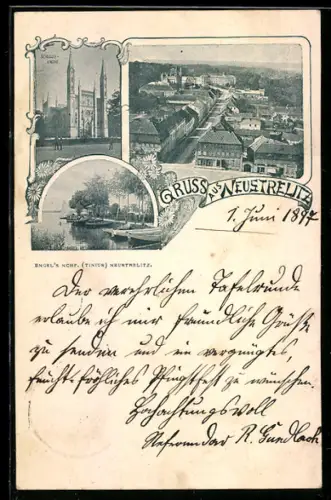 SCHLOSS-
KIRCHE.
GRUSS AUS NEUSTRELITZ
1. Juni 1897
ENGEL'S HOFF. (TINTEN) NEUSTRELITZ.
Der verehrlichen Tafelrunde
erlaube ich mir freundliche Grüße
zu senden und ein vergnügtes,
feucht-fröhliches Pfingstfest zu wünschen.
Hochachtungsvoll
Referendar R. Gundlach